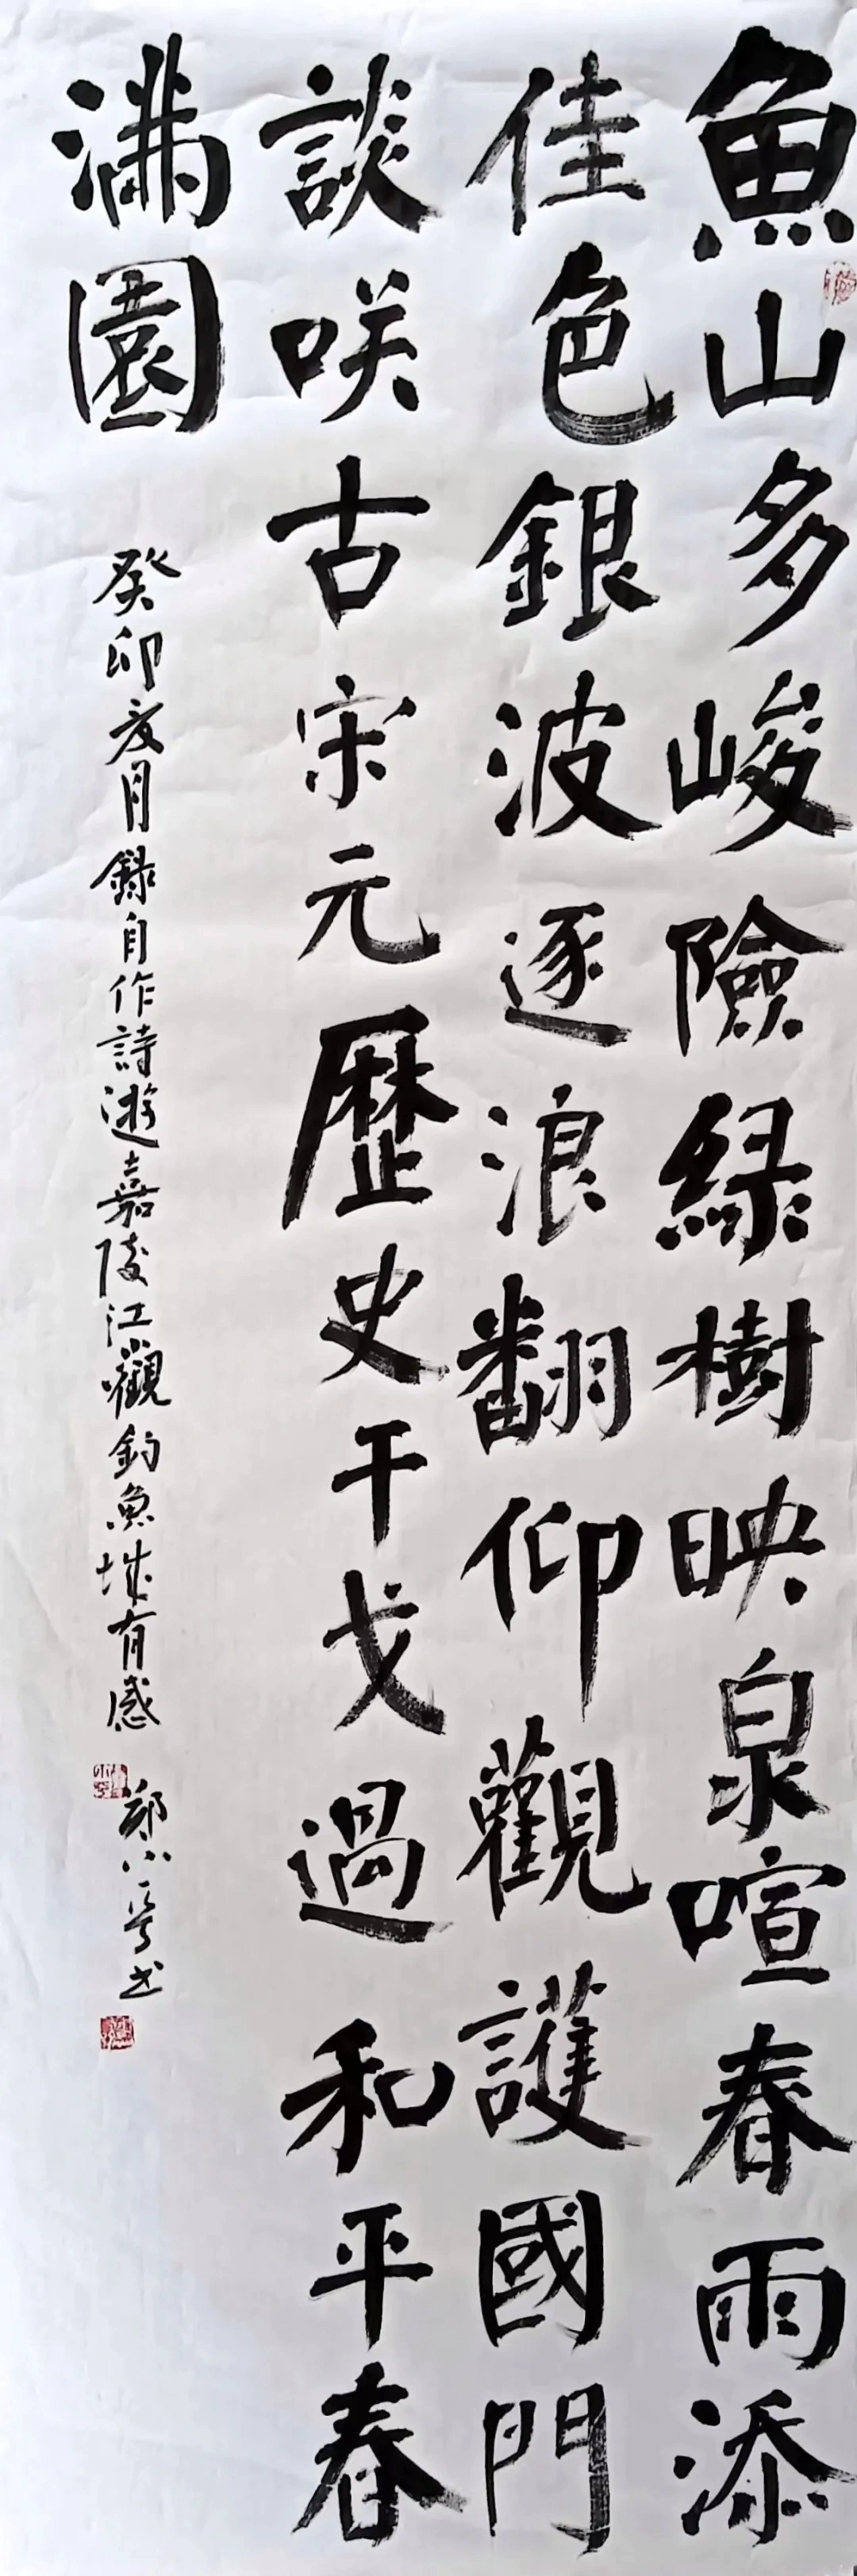 魚山多峻險綠樹映泉喧春雨添
佳色銀波逐浪翻仰觀護國門
談咲古宋元歷史干戈過和平春
滿園
癸卯亥月録自作詩遊嘉陵江觀釣魚城有感
鄭小粵书